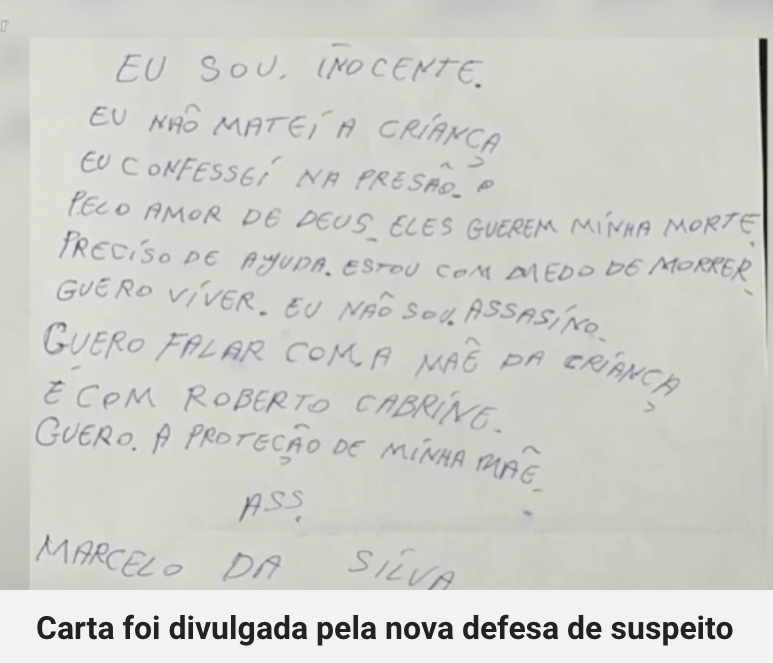 EU SOU. INOCENTE.
EU NÃO MATEI A CRIANÇA
EU CONFESSEI NA PRESÃO. P
PELO AMOR DE DEUS. ELES GUEREM MINHA MORTE.
PRECISO DE AYUDA. ESTOU COM MEDO DE MORRER.
GUERO VIVER. EU NÃO SOU. ASSASINO.
GUERO FALAR COM. A MAÊ DA CRIANÇA
E COM ROBERTO CABRINE.
GUERO. A PROTEÇÃO DE MINHA MAÊ.
ASS.
MARCELO DA SILVA
Carta foi divulgada pela nova defesa de suspeito